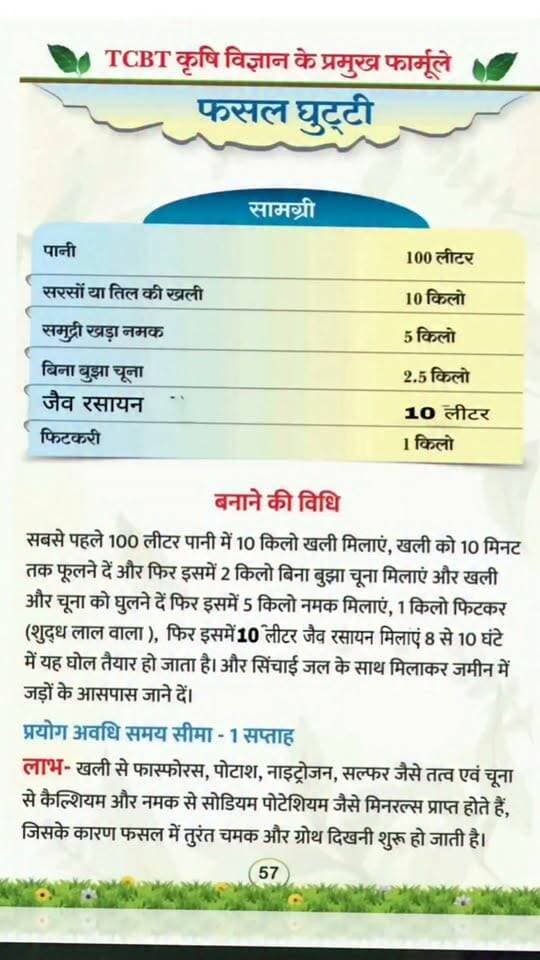 TCBT कृषि विज्ञान के प्रमुख फार्मूले
फसल घुट्टी
सामग्री
पानी 100 लीटर
सरसों या तिल की खली 10 किलो
समुद्री खड़ा नमक 5 किलो
बिना बुझा चूना 2.5 किलो
जैव रसायन 10 लीटर
फिटकरी 1 किलो
बनाने की विधि
सबसे पहले 100 लीटर पानी में 10 किलो खली मिलाएं, खली को 10 मिनट
तक फूलने दें और फिर इसमें 2 किलो बिना बुझा चूना मिलाएं और खली
और चूना को घुलने दें फिर इसमें 5 किलो नमक मिलाएं, 1 किलो फिटकर
(शुद्ध लाल वाला ), फिर इसमें 10 लीटर जैव रसायन मिलाएं 8 से 10 घंटे
में यह घोल तैयार हो जाता है। और सिंचाई जल के साथ मिलाकर जमीन में
जड़ों के आसपास जाने दें।
प्रयोग अवधि समय सीमा - 1 सप्ताह
लाभ- खली से फास्फोरस, पोटाश, नाइट्रोजन, सल्फर जैसे तत्व एवं चूना
से कैल्शियम और नमक से सोडियम पोटेशियम जैसे मिनरल्स प्राप्त होते हैं,
जिसके कारण फसल में तुरंत चमक और ग्रोथ दिखनी शुरू हो जाती है।
57